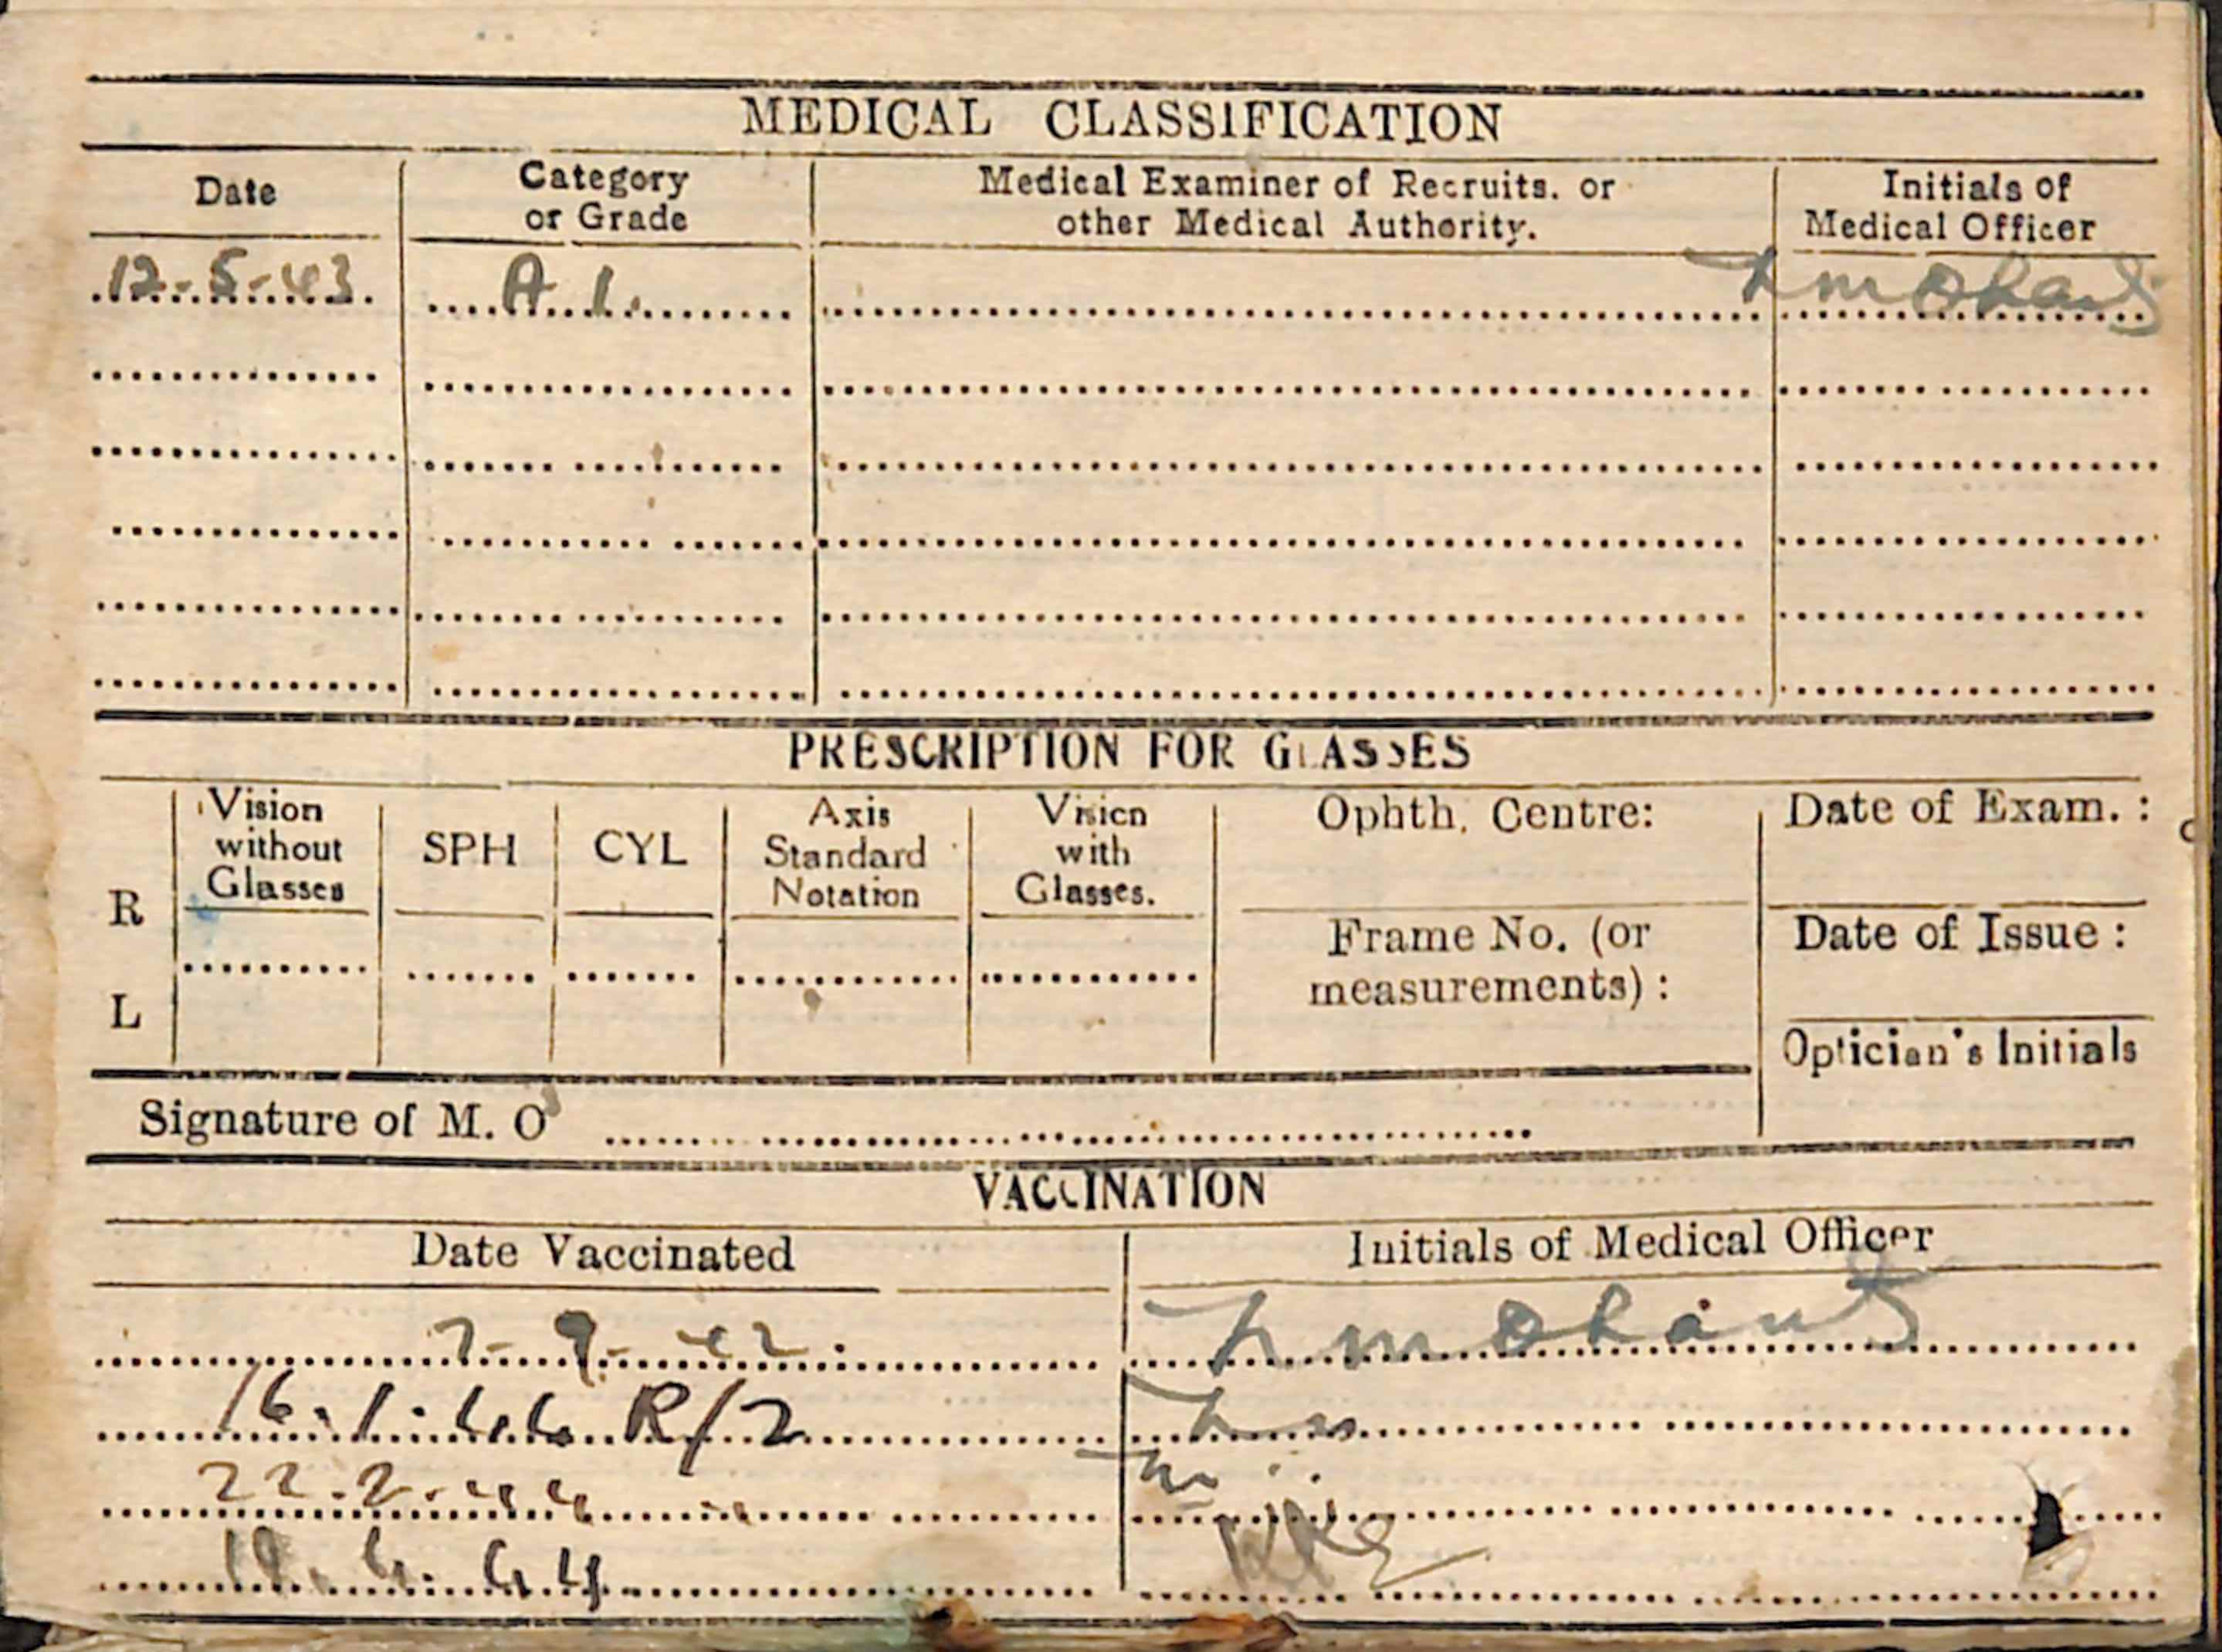 MEDICAL CLASSIFICATION
Date Category or Grade Medical Examiner of Recruits. or other Medical Authority. Initials of Medical Officer
12-5-43 A 1.
PRESCRIPTION FOR GLASSES
R L Vision without Glasses SPH CYL Axis Standard Notation Vision with Glasses. Ophth. Centre: Date of Exam. :
Frame No. (or measurements) : Date of Issue :
Optician's Initials
Signature of M. O
VACCINATION
Date Vaccinated Initials of Medical Officer
7-9-42
16.1.44 R/2
22.2.44
44